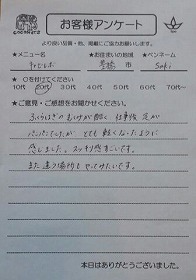 お客様アンケート
より良い品質・他、掲載にご協力お願いします。
★メニュー名 ★お住まいの地域 ★ペンネーム
市 Saki
★○を付けてください
10代 20代 30代 40代 50代 60代 70代～
★ご意見・ご感想をお聞かせください。
ふくらはぎのむくみが酷く 仕事後 足が
パンパンでしたが とても軽くなったように
感じました。スッキリ感すごいです。
また違う場所も やってみたいです。
本日はありがとうございました。